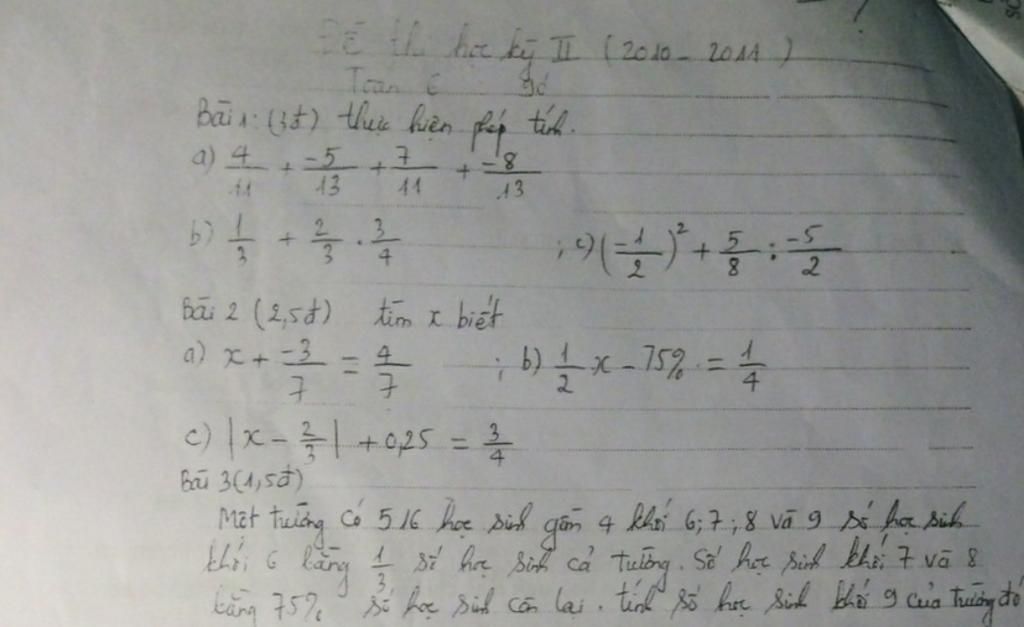 Đề thi học kỳ II (2010 - 2011)
Toán 6 90'
Bài 1: (3đ) thực hiện phép tính.
a) 4/11 + -5/13 + 7/11 + -8/13
b) 1/3 + 2/3 . 3/4 ; c) (-1/2)² + 5/8 : -5/2
Bài 2 (2,5đ) tìm x biết
a) x + -3/7 = 4/7 ; b) 1/2 x - 75% = 1/4
c) |x - 2/3| + 0,25 = 3/4
Bài 3 (1,5đ)
Một trường có 516 học sinh gồm 4 khối 6; 7; 8 và 9 số học sinh
khối 6 bằng 1/3 số học sinh cả trường. Số học sinh khối 7 và 8
bằng 75% số học sinh còn lại. tính số học sinh khối 9 của trường đó